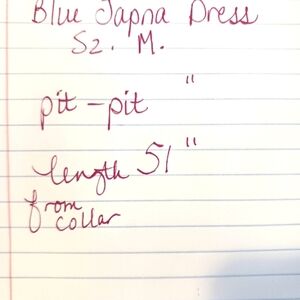 Blue Japna Dress
Sz. M.
"
pit - pit
length 51"
from
collar